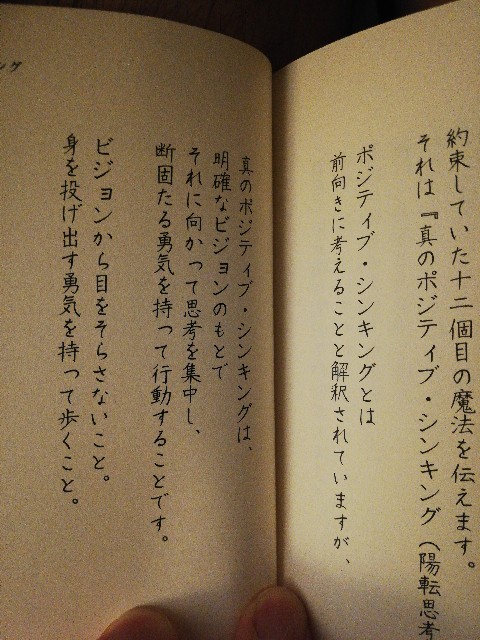 約束していた十二個目の魔法を伝えます。
それは『真のポジティブ・シンキング（陽転思考
ポジティブ・シンキングとは
前向きに考えることと解釈されていますが、
真のポジティブ・シンキングは、
明確なビジョンのもとで
それに向かって思考を集中し、
断固たる勇気を持って行動することです。
ビジョンから目をそらさないこと。
身を投げ出す勇気を持って歩くこと。
ング